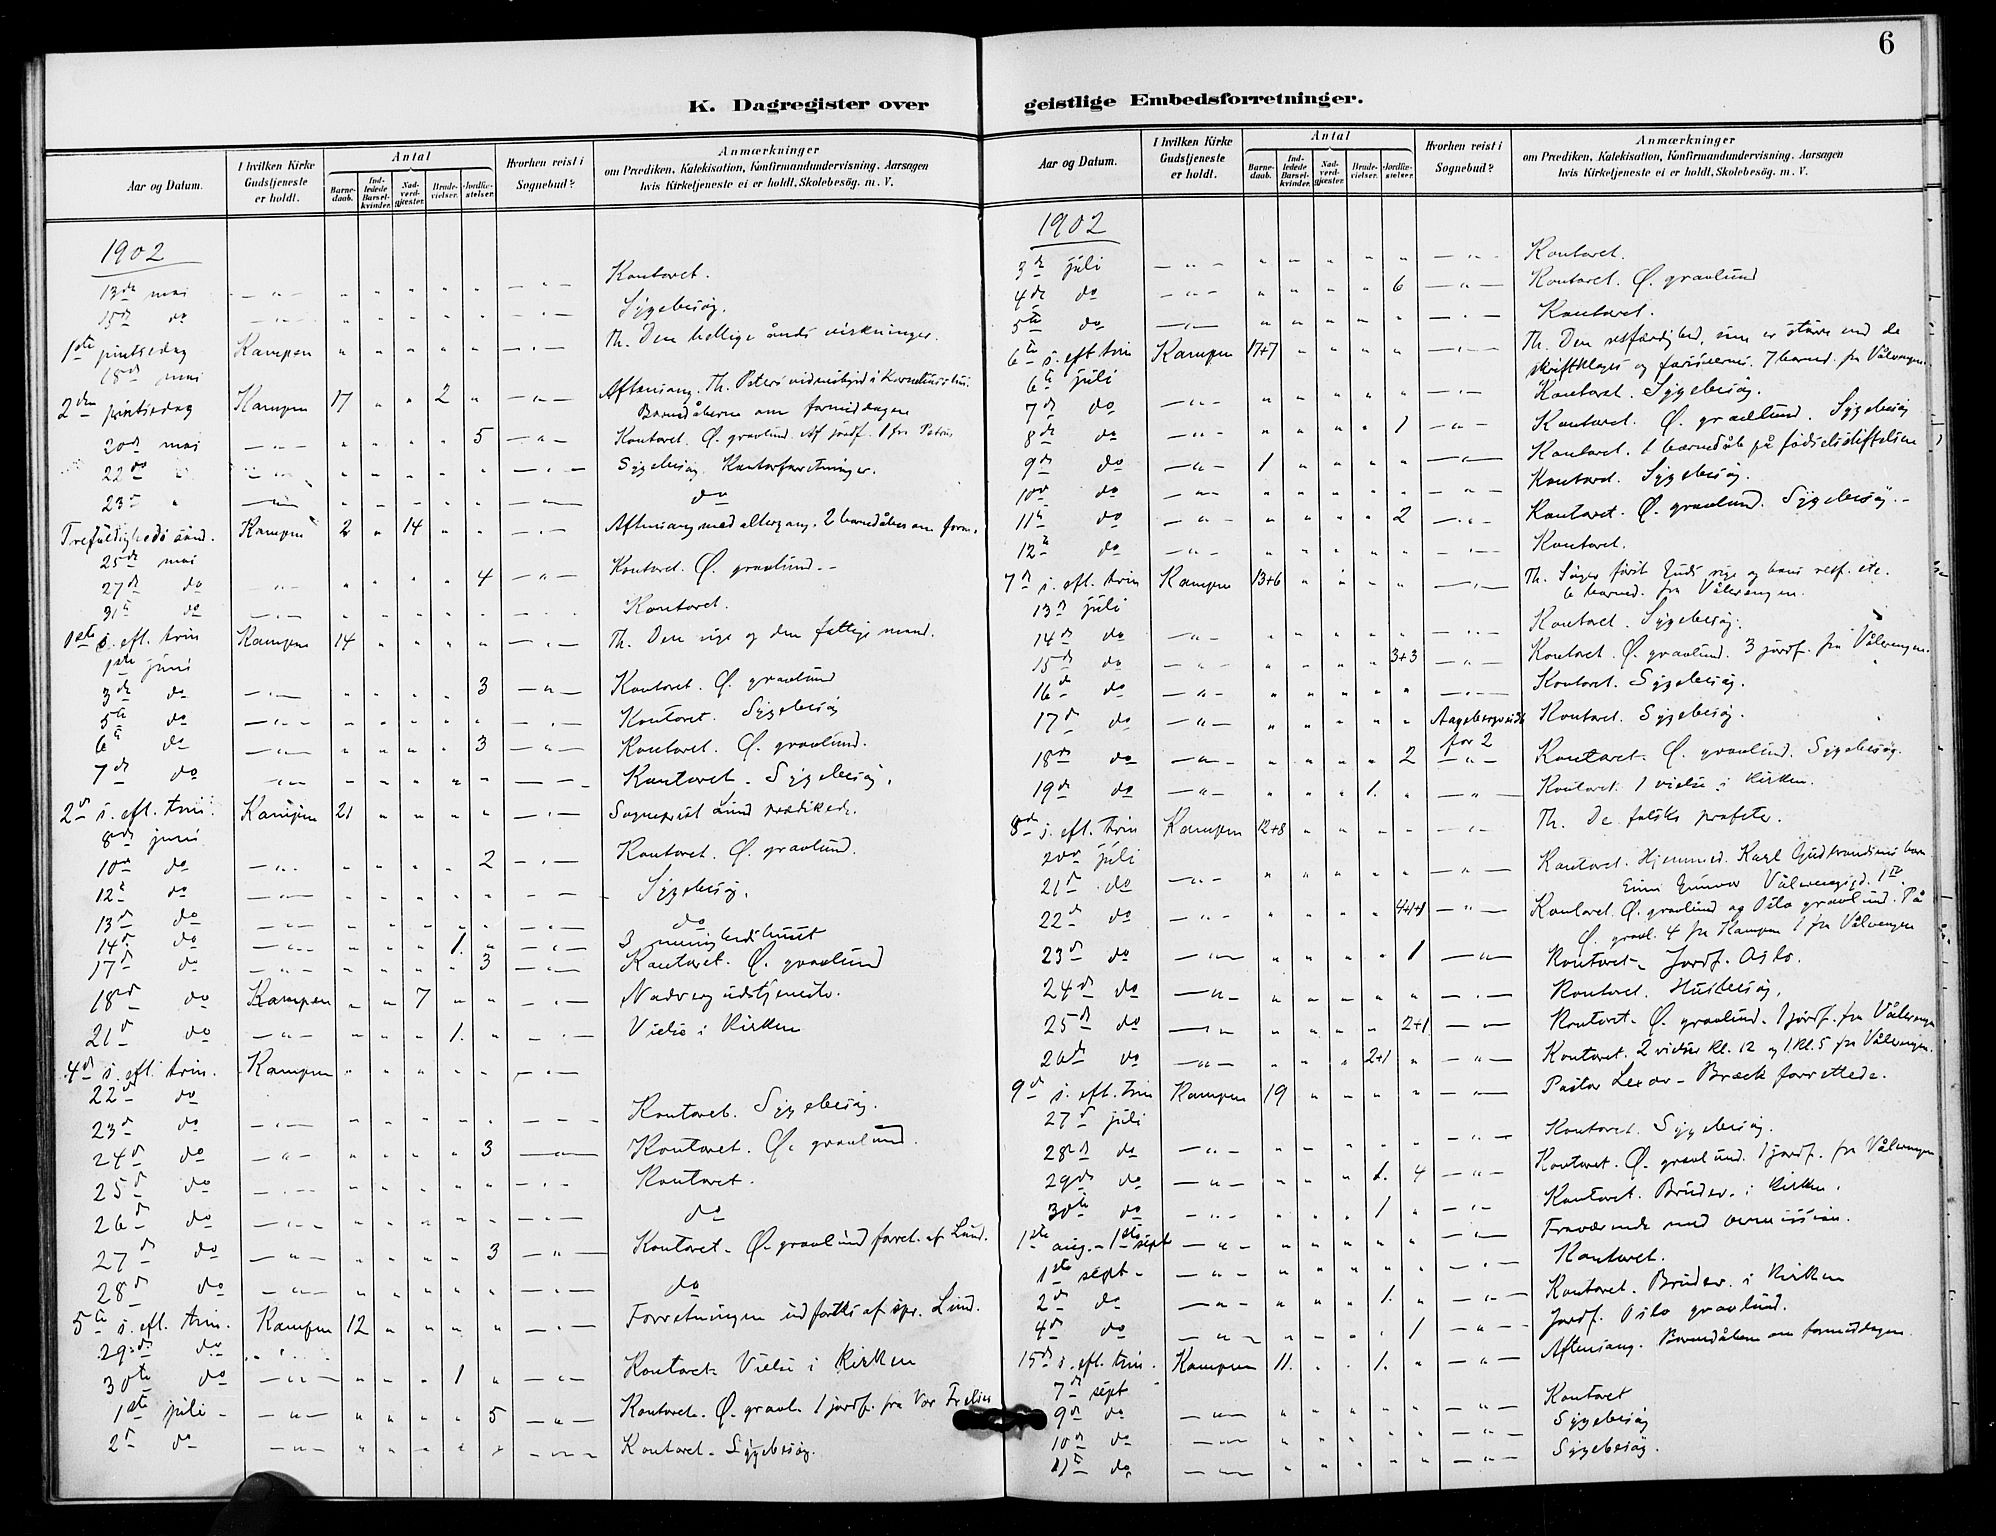 6
K. Dagregister over geistlige Embedsforretninger.
Aar og Datum. | I hvilken Kirke Gudstjeneste er holdt. | Antal | Barnedaab. | Indledede Barselkvinder. | Nadverdgjæster. | Brudevielser. | Jordfæstelser. | Hvorhen reist i Sognebud? | Anmærkninger om Prædiken, Katekisation, Konfirmandundervisning, Aarsagen hvis Kirketjeneste ei er holdt, Skolebesög, m. V.
1902
13de mai — " — " " " " " — " — Kontoret.
15de do — " — " " " " " — " — Sygebesøg.
1ste pintsedag Kampen " " " " " — " — Th. Den hellige ånds virkninger.
18de mai
2den pintsedag Kampen 17 " " 2 " — " — Aftensang. Th. Peters vidnesbyrd i Kornelius hus.
Barnedåberne om formiddagen
20de mai — " — " " " " 5 — " — Kontoret. Ø. gravlund. Af jordf. 1 fra Petrus
22de " — " — " " " " " — " — Sygebesøg. Kontorforretninger.
23de " — " — " " " " " — " — do
Trefoldigheds sønd. Kampen 2 " 14 " " — " — Aftensang med altergang. 2 barnedåber om form.
25de mai
27de do — " — " " " " 4 — " — Kontoret. Ø. gravlund.
31te do — " — " " " " " — " — Kontoret.
1ste s. eft. trin Kampen 14 " " " " — " — Th. Den rige og den fattige mand.
1ste juni
3de do — " — " " " " 3 — " — Kontoret. Ø. gravlund
5te do — " — " " " " " — " — Kontoret. Sygebesøg
6te do — " — " " " " 3 — " — Kontoret. Ø. gravlund.
7de do — " — " " " " " — " — Kontoret. Sygebesøg.
2den s. eft. trin. Kampen 21 " " " " — " — Sogneprest Lund prædikede.
8de juni
10de do — " — " " " " 2 — " — Kontoret. Ø. gravlund.
12te do — " — " " " " " — " — Sygebesøg.
13de do — " — " " " " " — " — do
14de do — " — " " " 1. " — " — I menighedshuset
17de do — " — " " " " 3 — " — Kontoret. Ø. gravlund
18de do Kampen " " 7 " " — " — Nadvergudstjeneste.
21de do — " — " " " 1. " — " — Vielse i kirken
4de s. eft. trin. Kampen " " " " " — " —
22de do
23de do — " — " " " " " — " — Kontoret. Sygebesøg.
24de do — " — " " " " 3 — " — Kontoret. Ø. gravlund.
25de do — " — " " " " " — " — Kontoret.
26de do — " — " " " " " — " — do
27de do — " — " " " " 3 — " — Kontoret. Ø. gravlund forret. af Lund.
28de do — " — " " " " " — " — do
5te s. eft. trin. Kampen 12 " " " " — " — Forretningen udførtes af spr. Lund.
29de do
30te do — " — " " " 1 " — " — Kontoret. Vielse i kirken
1ste juli — " — " " " " 5 — " — Kontoret. Ø. gravl. 1 jordf. fra Vor Frelser
2de do — " — " " " " " — " — Kontoret. Sygebesøg.
Aar og Datum. | I hvilken Kirke Gudstjeneste er holdt. | Antal | Barnedaab. | Indledede Barselkvinder. | Nadverdgjæster. | Brudevielser. | Jordfæstelser. | Hvorhen reist i Sognebud? | Anmærkninger om Prædiken, Katekisation, Konfirmandundervisning, Aarsagen hvis Kirketjeneste ei er holdt, Skolebesög, m. V.
1902
3de juli — " — " " " " " — " — Kontoret.
4de do — " — " " " " 6 — " — Kontoret. Ø. gravlund
5te do — " — " " " " " — " — Kontoret.
6te s. eft. trin Kampen 17+7 " " " " — " — Th. Den retfærdighed, som er større end de
6te juli skriftkloges og farisæernes. 7 barned. fra Vålerengen
7de do — " — " " " " " — " — Kontoret. Sygebesøg.
8de do — " — " " " " 1 — " — Kontoret. Ø. gravlund. Sygebesøg
9de do — " — 1 " " " " — " — Kontoret. 1 barnedåb på fødselsstiftelsen
10de do — " — " " " " " — " — Kontoret. Sygebesøg.
11te do — " — " " " " 2 — " — Kontoret. Ø. gravlund. Sygebesøg.
12te do — " — " " " " " — " — Kontoret.
7de s. eft. trin Kampen 13+6 " " " " — " — Th. Søger først Guds rige og hans retf. etc.
13de juli 6 barned. fra Vålerengen.
14de do — " — " " " " " — " — Kontoret. Sygebesøg.
15de do — " — " " " " 3+3 — " — Kontoret. Ø. gravlund. 3 jordf. fra Vålerengen.
16de do — " — " " " " " — " — Kontoret. Sygebesøg.
17de do — " — " " " " " Aagebergveien for 2 Kontoret. Sygebesøg.
18de do — " — " " " " 2 — " — Kontoret. Ø. gravlund. Sygebesøg.
19de do — " — " " " 1. " — " — Kontoret. 1 vielse i kirken.
8de s. eft. trin Kampen 12+8 " " " " — " — Th. De falske profeter.
20de juli
21de do — " — " " " " " — " — Kontoret. Hjemmed. Karl Gudbrandsens barn
Einar Gunvor Vålerenggd. 1
22de do — " — " " " " 4+1 — " — Kontoret. Ø. gravlund og Oslo gravlund. På
Ø. gravl. 4 fra Kampen 1 fra Vålerengen
23de do — " — " " " " 1 — " — Kontoret. Jordf. Oslo.
24de do — " — " " " " " — " — Kontoret. Husbesøg.
25de do — " — " " " " 2+1 — " — Kontoret. Ø. gravlund. 1 jordf. fra Vålerengen
26de do — " — " " " 2+1 " — " — Kontoret. 2 vielser kl. 12 og 1 kl. 5 fra Vålerengen.
9de s. eft. trin Kampen 19 " " " " — " — Pastor Lexov-Bræck forrettede.
27de juli
28de do — " — " " " " " — " — Kontoret. Sygebesøg.
29de do — " — " " " 1. 4 — " — Kontoret. Ø. gravlund. 1 jordf. fra Vålerengen
30te do — " — " " " 1 " — " — Kontoret. Brudev. i kirken.
1ste aug. - 1ste sept — " — " " " " " — " — Fraværende med permission.
1ste sept. — " — " " " " " — " — Kontoret.
2de do — " — " " " 1. " — " — Kontoret. Brudev. i kirken
4de do — " — " " " " 1 — " — Jordf. Oslo gravlund.
15de s. eft. trin. Kampen 11. " " 1. " — " — Aftensang. Barnedåben om formiddagen.
7de sept
9de do — " — " " " " " — " — Kontoret
10de do — " — " " " " " — " — Sygebesøg
11te do. — " — " " " " " — " — Sygebesøg.